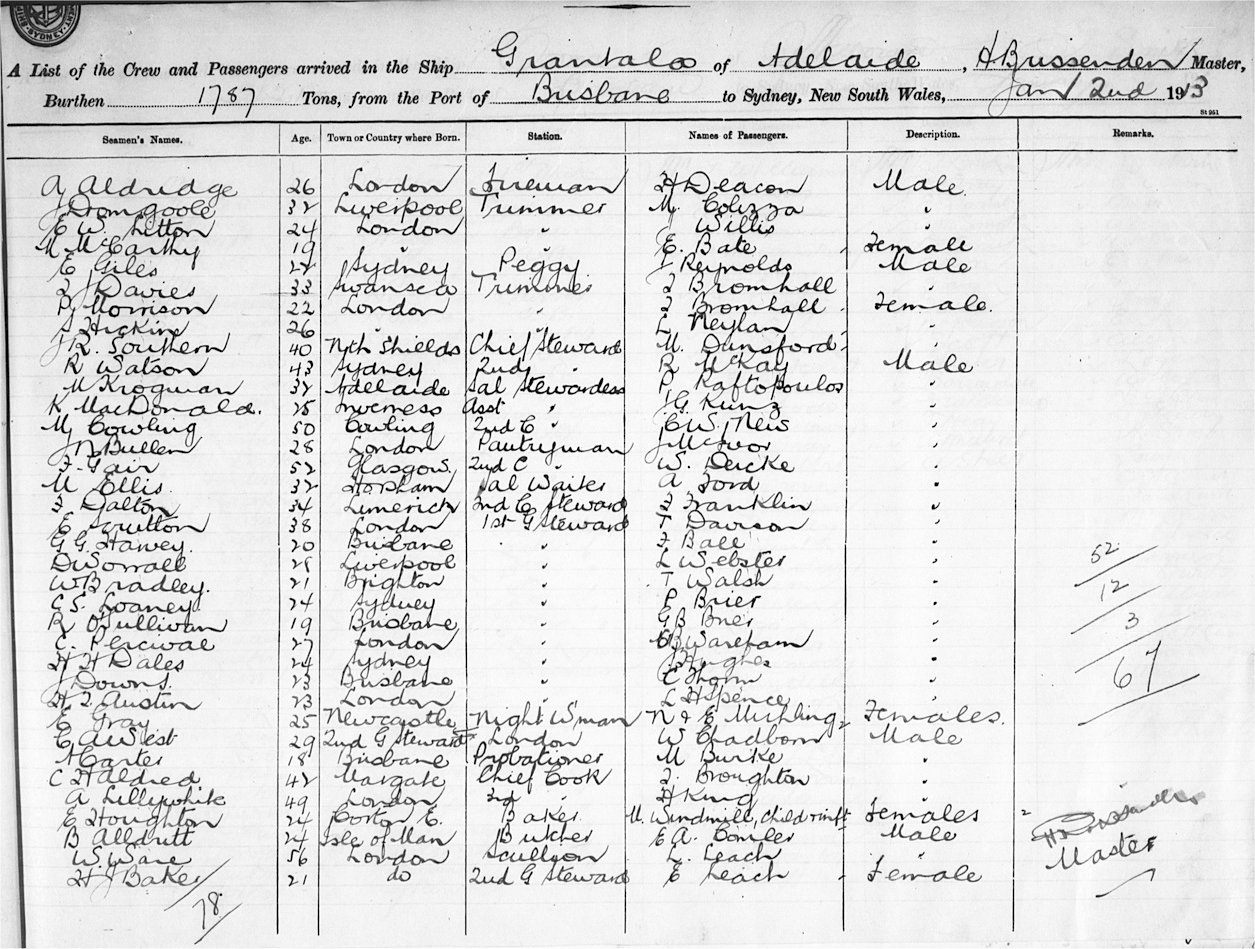 SYDNEY
A List of the Crew and Passengers arrived in the Ship Grantala of Adelaide, H Brissenden Master,
Burthen 1787 Tons, from the Port of Brisbane to Sydney, New South Wales, Jany 2nd 1913
St 951
Seamen's Names. Age. Town or Country where Born. Station. Names of Passengers. Description. Remarks.
A Aldridge 26 London Fireman H Deacon Male
J Dromgoole 32 Liverpool Trimmer M. Colizza "
E W. Litton 24 London " J Willis "
M McCarthy 19 " " E. Bate Female
E Giles 22 Sydney Peggy J Reynolds Male
J Davies 33 Swansea Trimmer J Bromhall "
P Morrison 22 London " J Bromhall Female
S Hickins 26 " " L Neylan "
J R. Southern 40 Nth Shields Chief Steward M. Dunsford "
R Watson 43 Sydney 2nd " R McKay Male
M Krogman 32 Adelaide Sal Stewardess P Raftopoulos "
K MacDonald. 25 Inverness Asst " J. G. Kunz "
M Cowling 50 Cowling 2nd C " E W New "
J N Bullen 28 London Pantryman J McIvor "
F. Gair 52 Glasgow 2nd C " W. Deicke "
M Ellis 32 Horsham Sal Waiter A Ford "
F Dalton 34 Limerick 2nd C Steward F Franklin "
E Scrutton 38 London 1st G Steward T Davison "
G G. Harvey 20 Brisbane " F Ball "
D Worrall 28 Liverpool " L Webster "
W Bradley. 21 Brighton " T Walsh "
C S. Loaney 24 Sydney " P Brier "
R O'Sullivan 19 Brisbane " G B Brier "
C. Percival 27 London " Wareham "
H H Dales 24 Sydney " J Hughes "
J Downs 23 Brisbane " C Thorn "
H J Austin 23 London " L H Spence "
E Gray 25 Newcastle Night W'man N & E Mishling 2 Females.
E A West 29 2nd G Steward London W Chadborn Male
A Carter 18 Brisbane Probationer M Burke "
C H Aldred 42 Margate Chief Cook J. Broughton "
A Lillywhite 49 London 3rd " H King "
E Houghton 24 Corton E. Baker M Windmill, child & inft Females 2
B Alldritt 24 Isle of Man Butcher E A. Male
W. Ware 56 London Scullion L. Leach "
H J Baker 21 do 2nd G Steward E Leach Female
78
52
12
3
67
H Brissenden
Master